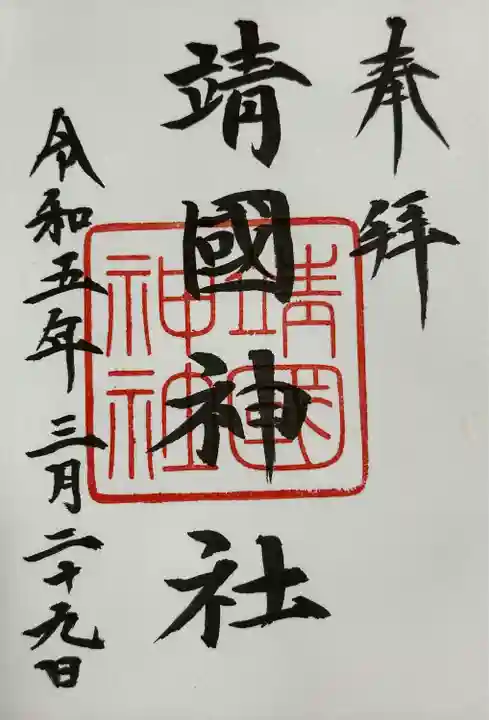 奉拜
靖國神社
靖國神社
令和五年三月二十九日